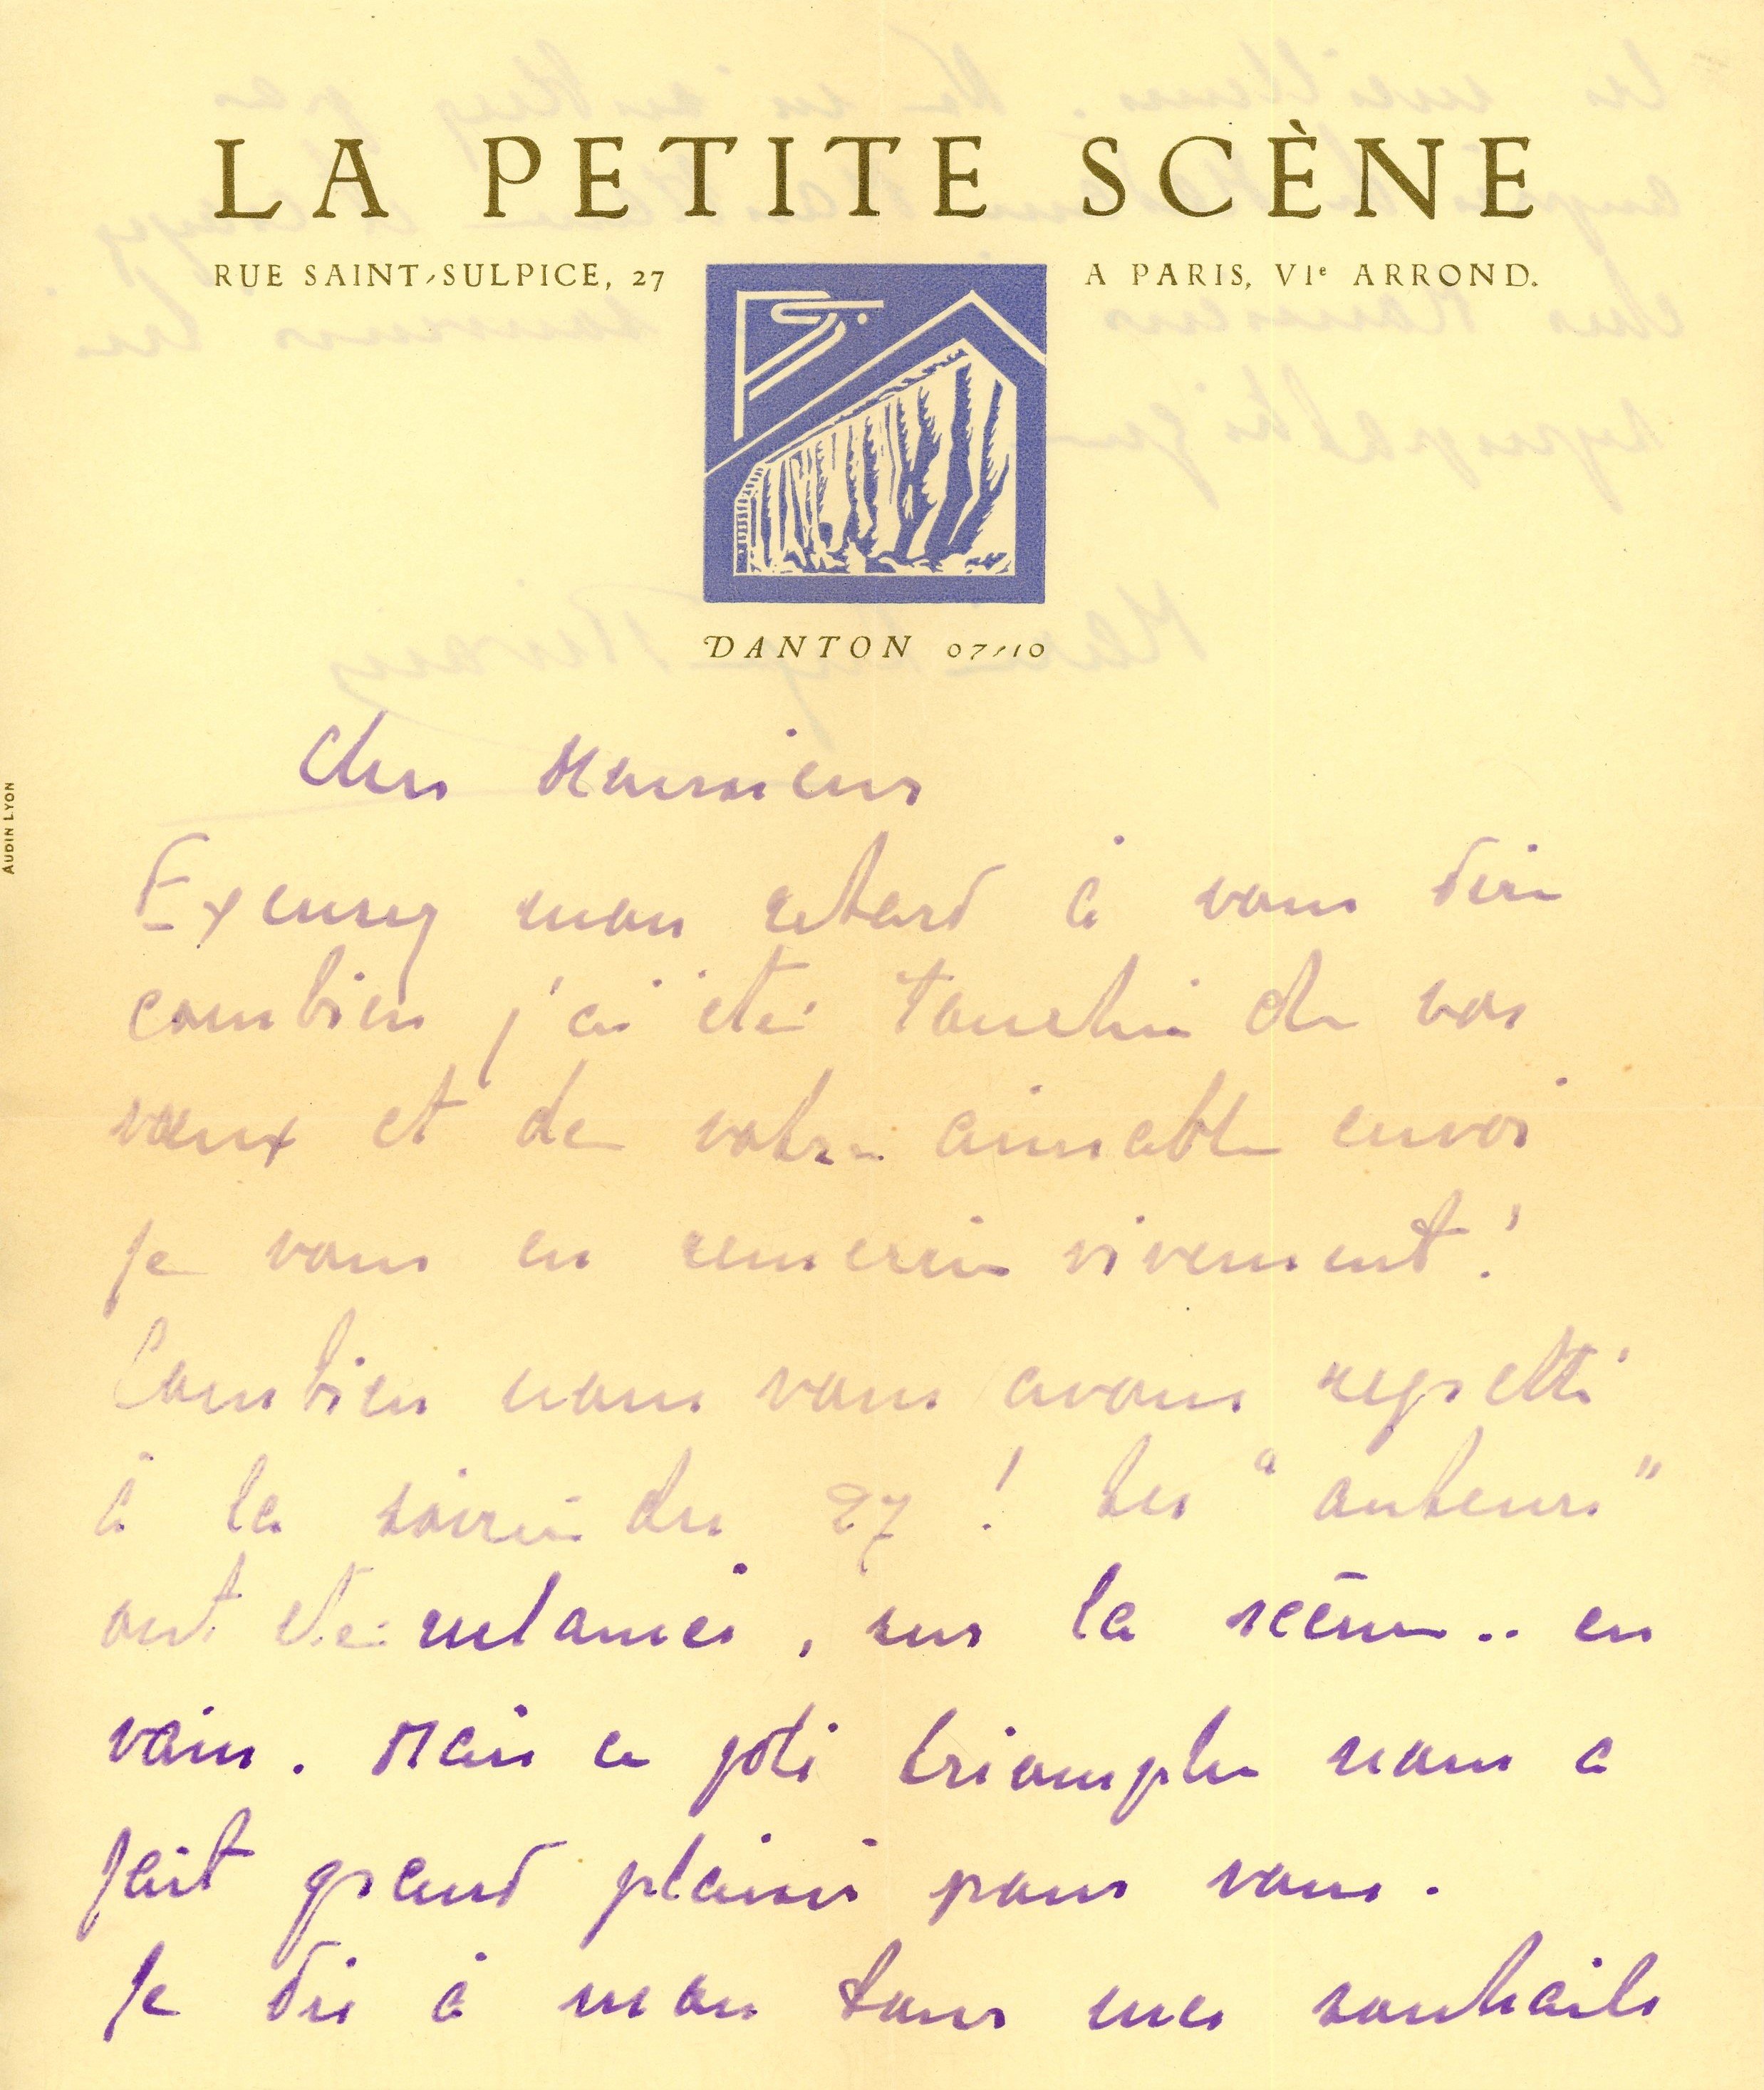 LA PETITE SCÈNE
RUE SAINT-SULPICE, 27
A PARIS, VIe ARROND.
PS.
DANTON 07-10
AUDIN LYON
Cher Monsieur
Excusez mon retard à vous dire
combien j'ai été touchée de vos
vœux et de votre aimable envoi
Je vous en remercie vivement !
Combien nous vous avons regretté
à la soirée du 27 ! Les "auteurs"
ont été réclamés, sur la scène.. en
vain. Mais ce joli triomphe nous a
fait grand plaisir pour vous.
Je dis à mon tour mes souhaits